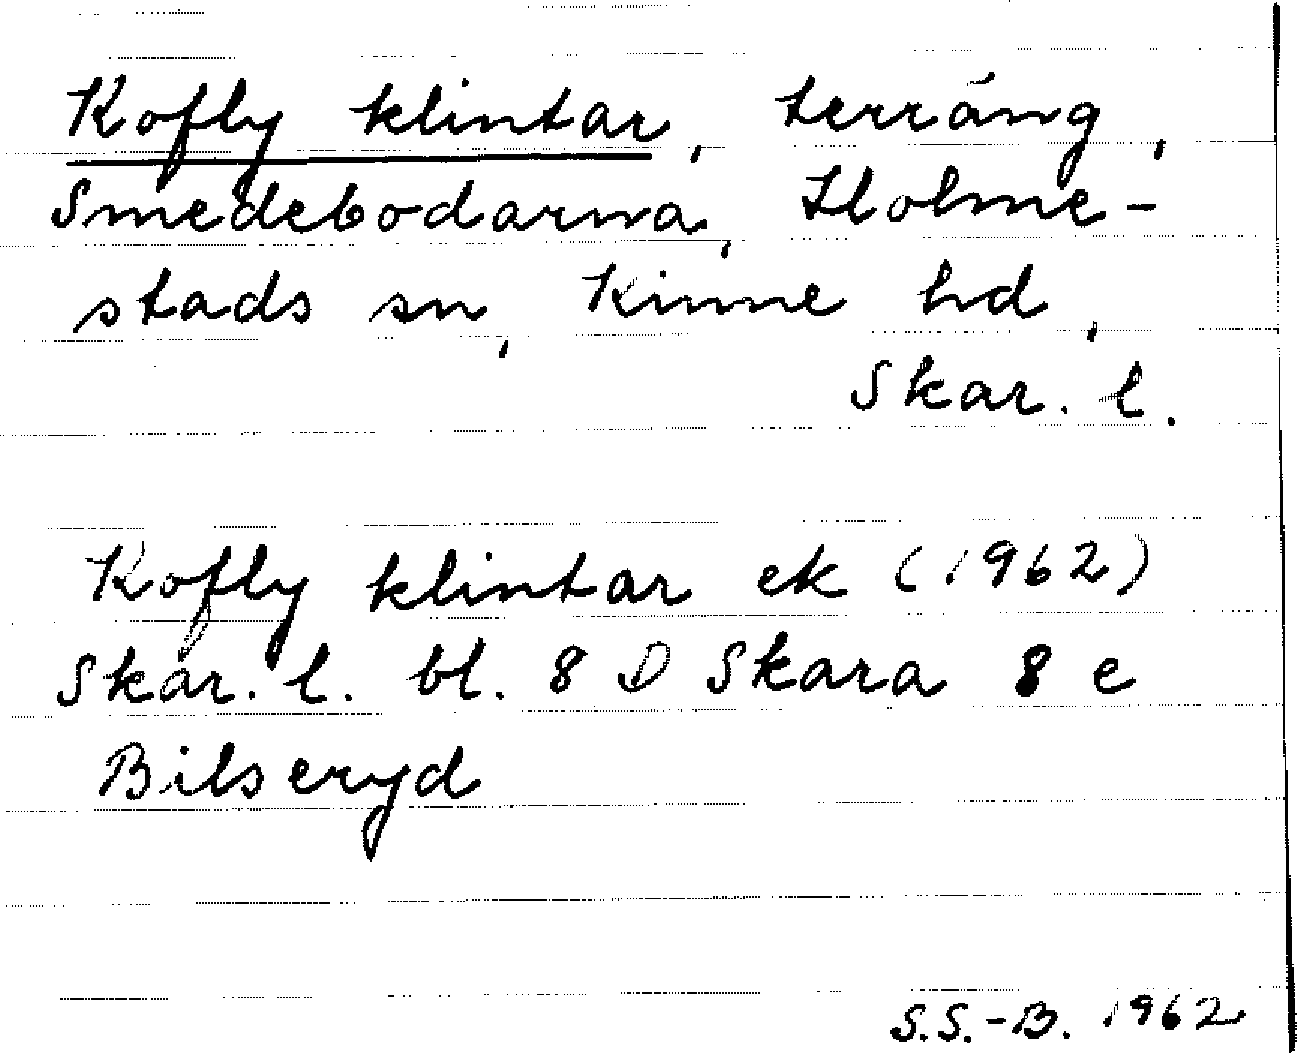 Kofly klintar, terräng,
Smedebodarna, Holme-
stads sn, Kinne hd,
Skar. l.
Kofly klintar ek (1962)
Skar. l. bl. 8 D Skara 8 e
Bilseryd
S.S.-B. 1962